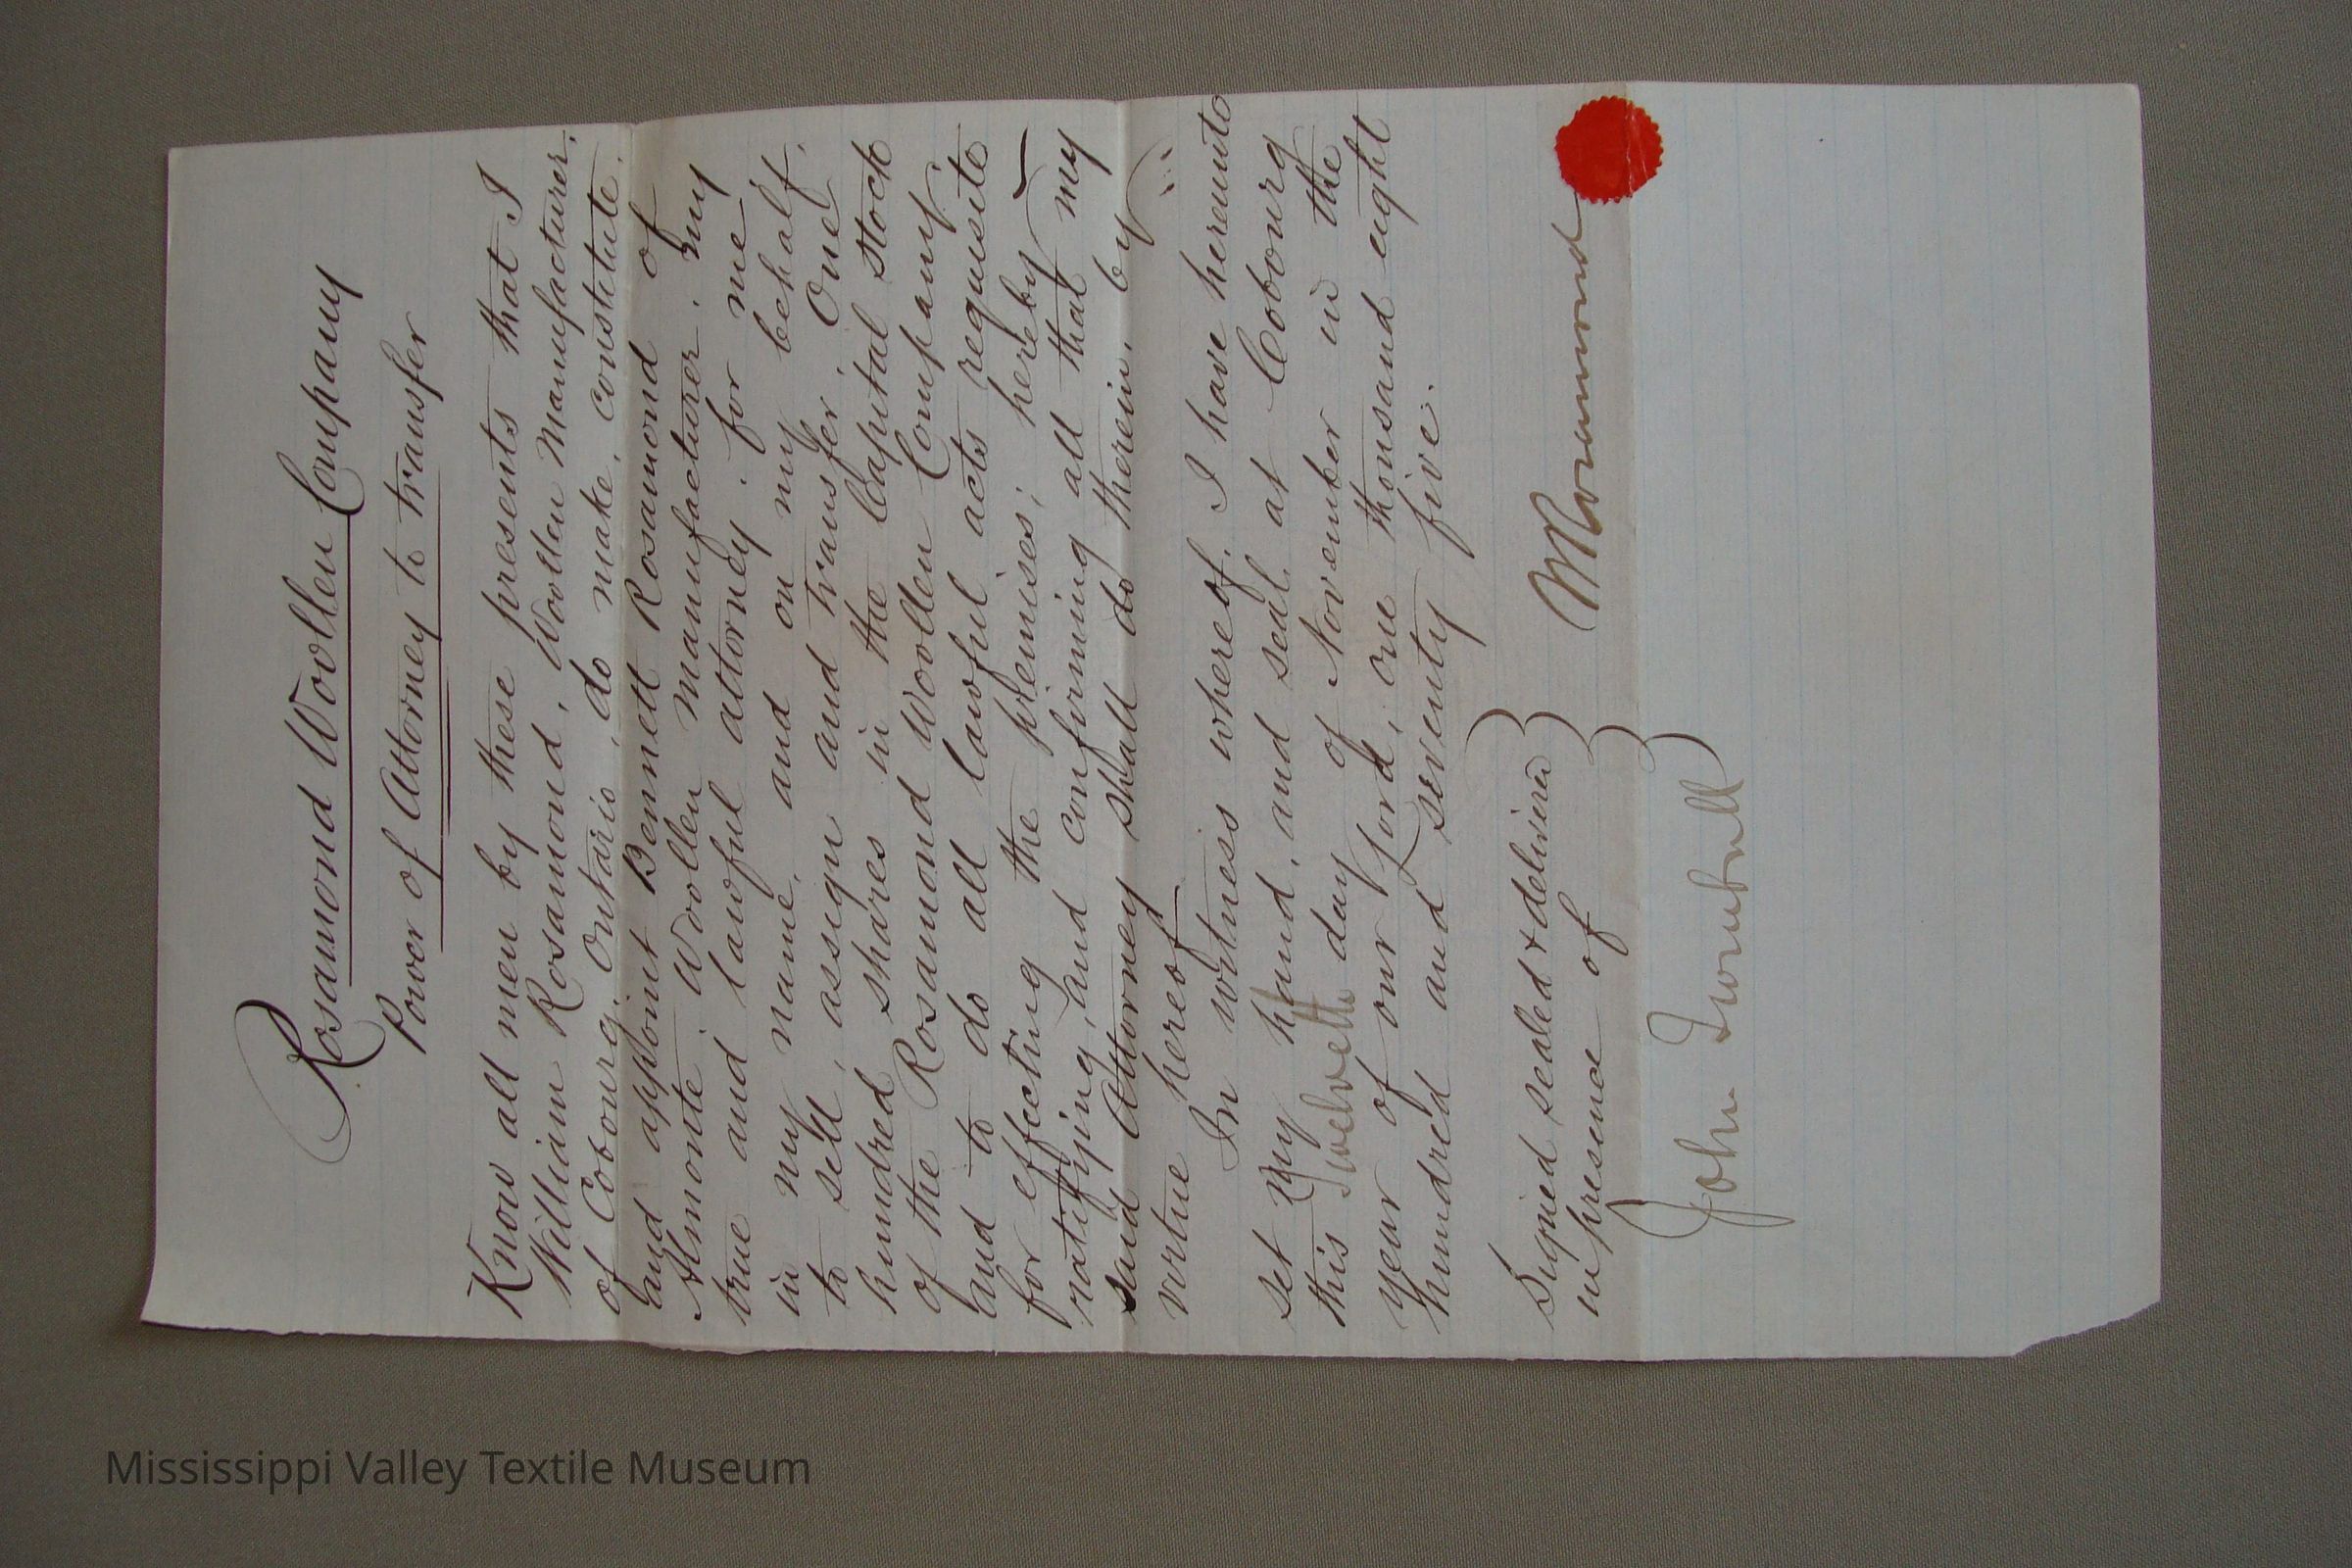 Rosamond Woollen Company
Power of Attorney to transfer
Know all men by these presents that I
William Rosamond, Woollen Manufacturer,
of Cobourg, Ontario, do make, constitute,
and appoint Bennett Rosamond of
Almonte, Woollen Manufacturer, my
true and lawful attorney, for me
in my name, and on my behalf,
to sell, assign and transfer, One
hundred shares in the Capital stock
of the Rosamond Woollen Company
and to do all lawful acts requisite
for effecting the premises; hereby
ratifying, and confirming all that my
said Attorney shall do therein, by
virtue hereof
In witness whereof, I have hereunto
set my hand, and seal, at Cobourg
this Twelveth day of November in the
year of our Lord, one thousand eight
hundred and seventy five.
Signed sealed & delivered
in presence of
WRosamond
John
Mississippi Valley Textile Museum